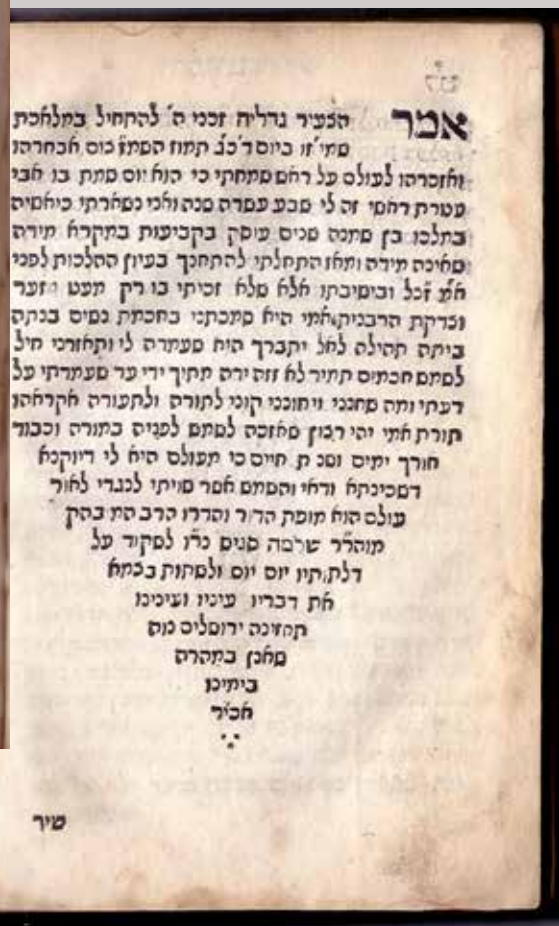 אמר הצעיר גדליה זכני ה' להתחיל במלאכת
שמי זו ביום ד' כב תמוז השמז כוס אבחרהו
ואזכרהו לעולם על ראש שמחתי כי הוא יום שמת בו אבי
עטרת ראשי זה לי שבע עשרה שנה ואני נשארתי כיאשיה
במלכו בן שמנה שנים עוסק בקביעות במקרא מידה
שאינה מידה ומאז התחלתי להתחנך בעיון ההלכות לפני
אמ זכל ובישיבתו אלא שלא זכיתי בו רק מעט זער
וצדקת הרבנית אמי היא סמכתני בחכמת נשים בנתה
ביתה תהילה לאל יתברך הוא שעמדה לי ותאזרני חיל
לשמש חכמים תמיד לא זזה ידה מתוך ידי עד שעמדתי על
דעתי ומה שחנני ויחונני קוני לתורה ולתעודה אקראהו
תורת אמי יהי רצון שאזכה לשמש לפניה במורה וכבוד
אורך ימים ושנות חיים כי מעולם היא לי דיוקנא
דשכינתא ודאי והשמש אשר שויתי לנגדי לאור
עולם הוא מופת הדור והדרו הרב המובהק
מוהרר שלמה שנים נרו לשקוד על
דלתותיו יום יום ולשתות בצמא
את דבריו עיניו ועינינו
תחזינה ירושלים נוה
שאנן במהרה
בימינו
אכיר
שיר